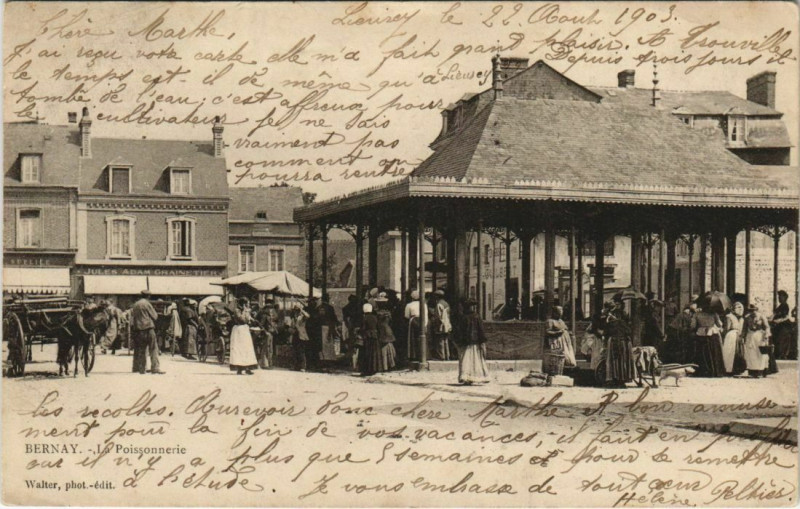 Lieurey le 22 Août 1903.
Chère Marthe,
J'ai reçu votre carte elle m'a fait grand plaisir. A Trouville
le temps est il de même qu'à Lieurey Depuis trois jours il
tombe de l'eau; c'est affreux pour
le cultivateur je ne sais
vraiment pas
comment on
pourra rentrer
les récoltes. Aurevoir donc chère Marthe et bon amuse
ment pour la fin de vos vacances, il faut en profiter
car il n'y a plus que 5 semaines et pour se remettre
à l'étude. Je vous embrasse de tout cœur
Hélène Pelhier.
JULES ADAM GRAINETIER
BERNAY. - La Poissonnerie
Walter, phot.-édit.